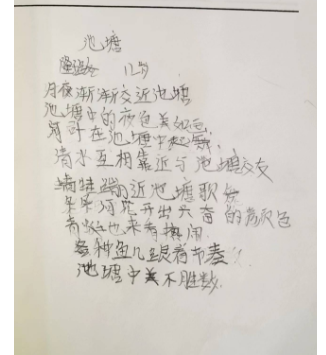 池塘
12岁
月夜渐渐交近池塘
池塘中的夜色美如画
河叶在池塘中起舞
清水互相靠近与池塘交友
蜻蜓 近池塘歌
朵朵河花开出 的颜色
青蛙也来看热闹
各种鱼儿跟着节奏
池塘中美不胜数